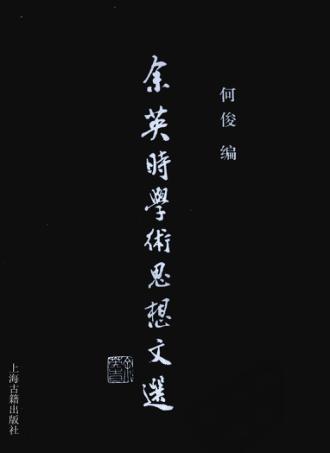 何俊 编
余英時學術思想文選
上海古籍出版社